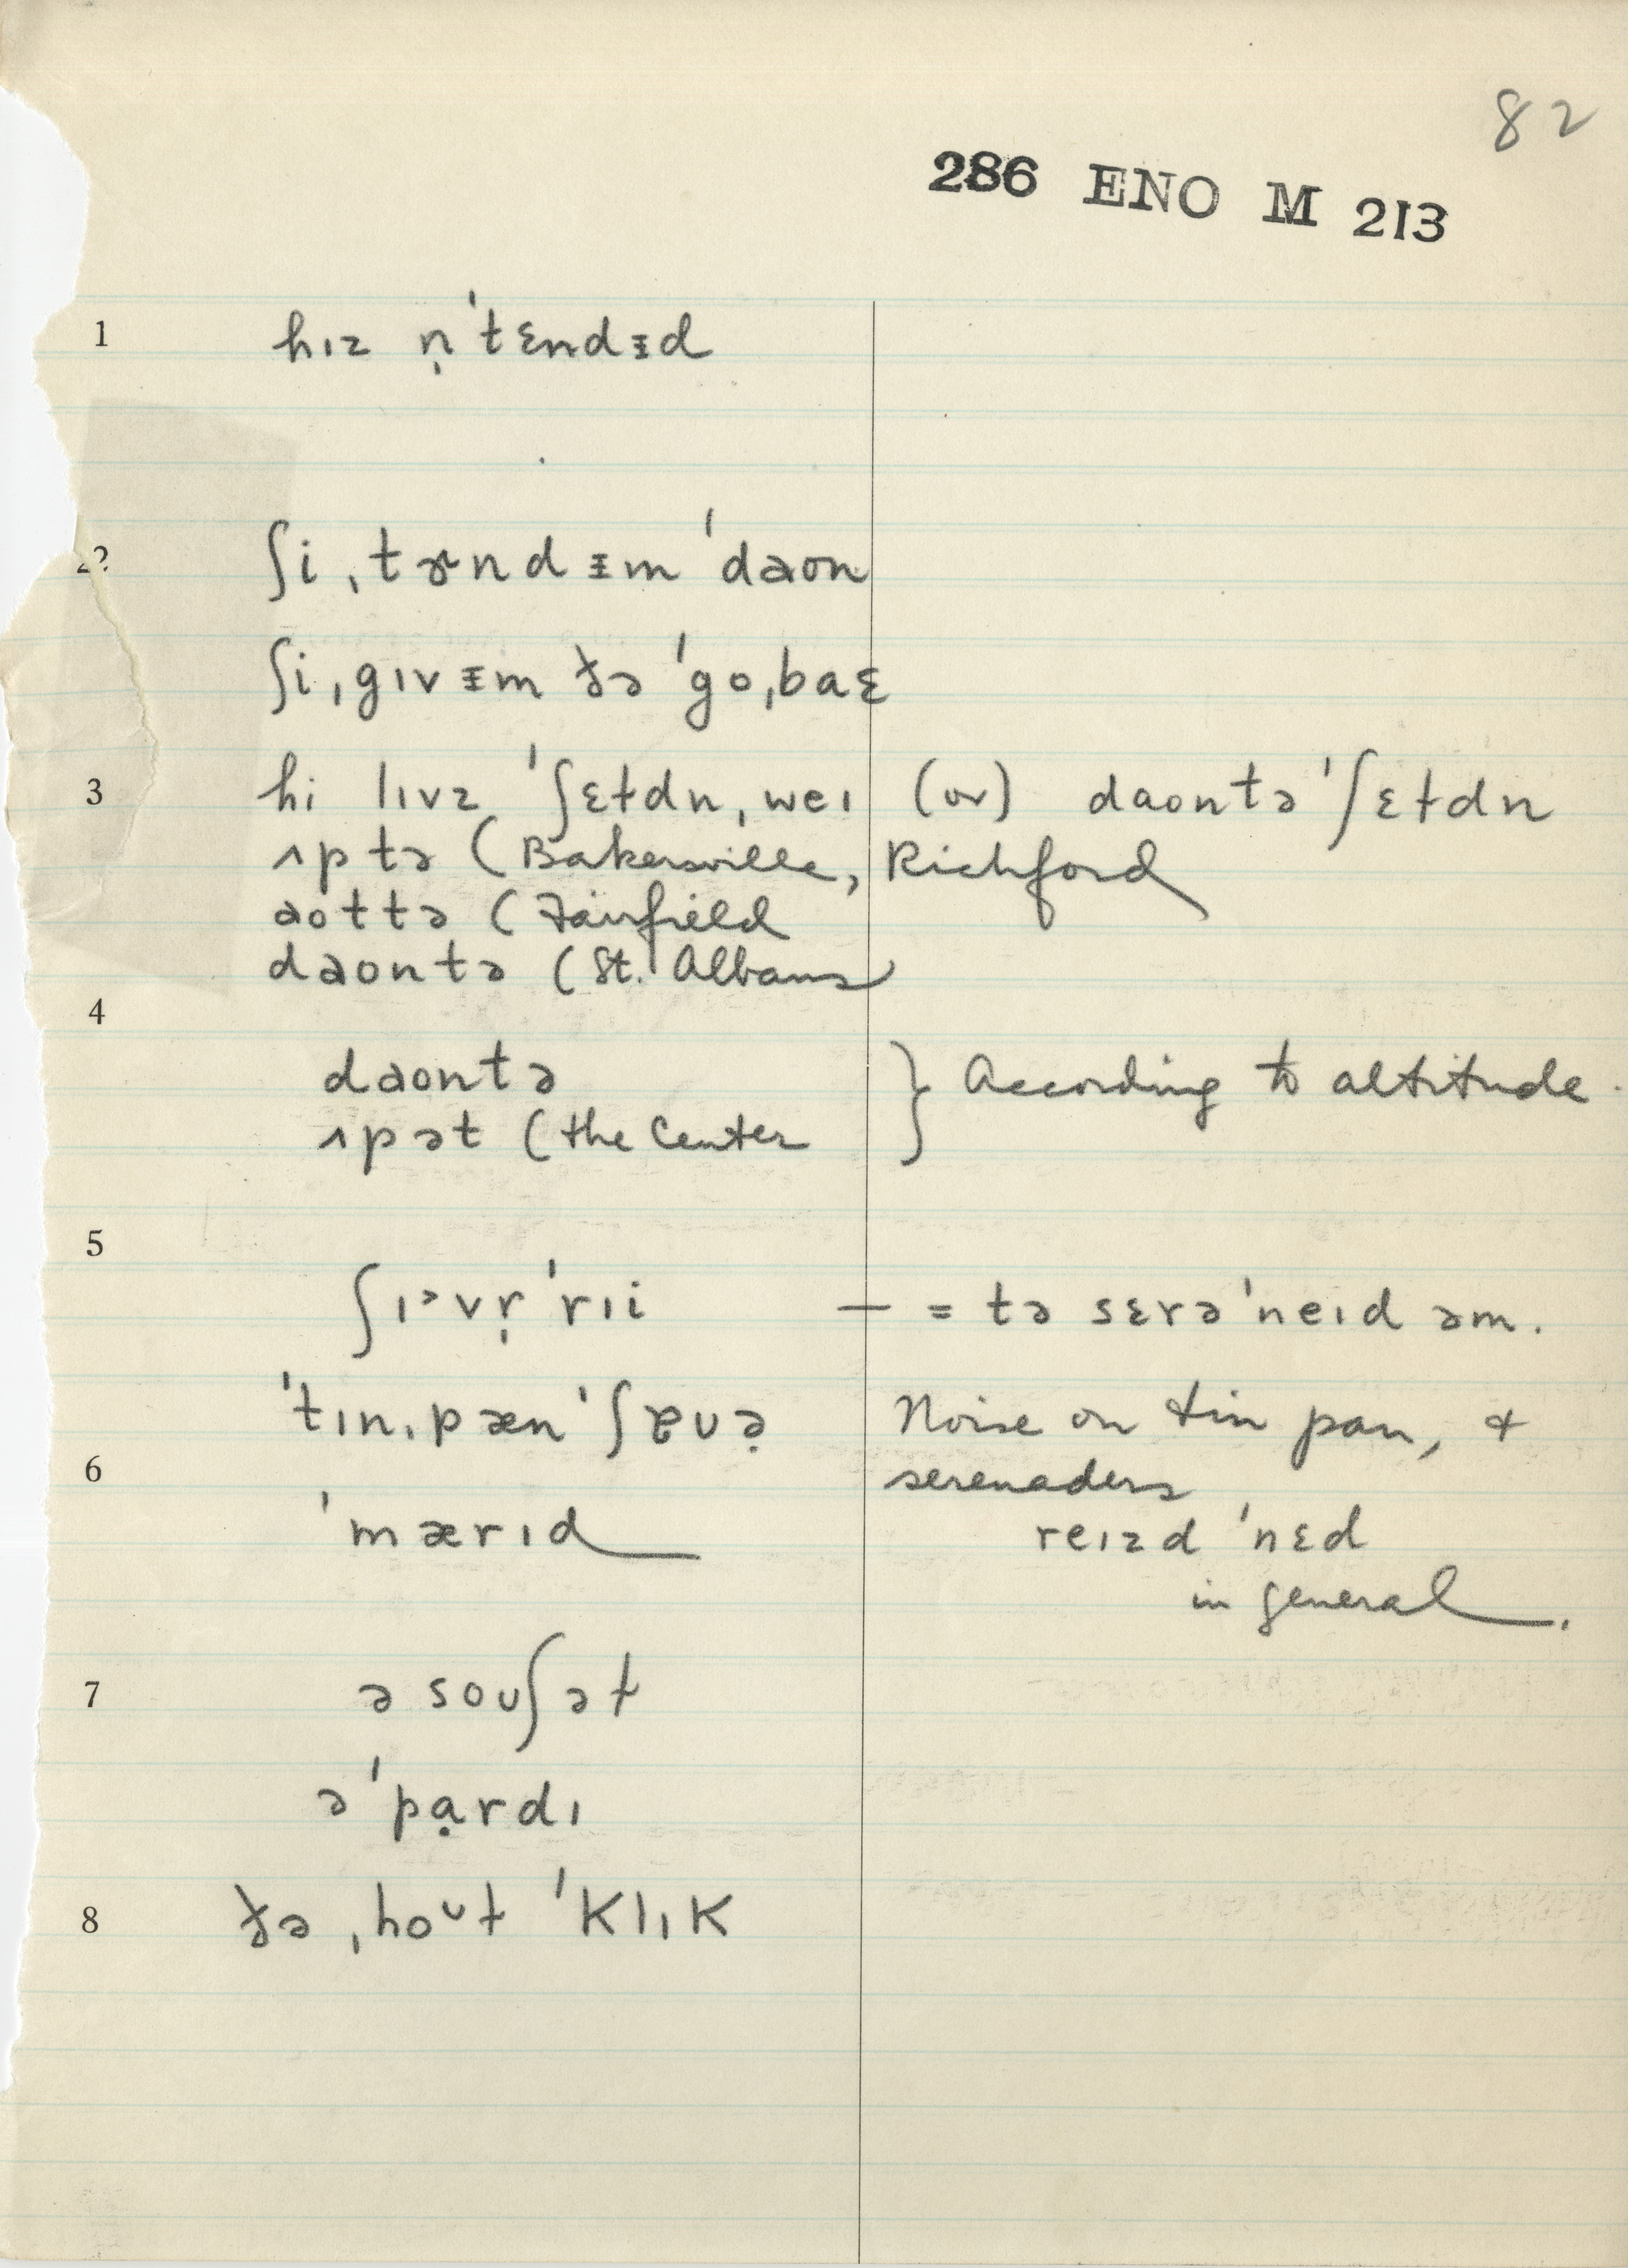 82
286 ENO M 213
1 hɪz n̩ˈtɛndᵻd
2 ʃi ˌtɚnd ᵻm ˈdaon
ʃi ˌgɪv ᵻm ðə ˈgoˌbaɛ
3 hi lɪvz ˈʃɛɫdnˌweɪ (or) daontə ˈʃɛɫdn
ʌp tə (Bakersville, Richford
aottə (Fairfield
daontə (St. Albans
4
daontə } According to altitude.
ʌpət (the Center
5
ʃɪᵊvr̩ˈrɪi — = tə sɛrəˈneɪd əm.
ˈtɪnˌpænˈʃɐʊə̣ Noise on tin pan, &
6 serenaders
ˈmærɪd reɪzd ˈnɛd
in general.
7 ə soʊʃəɫ
ə ˈpạrdɪ
8 ðə ˌhoᶷɫ ˈklɪk